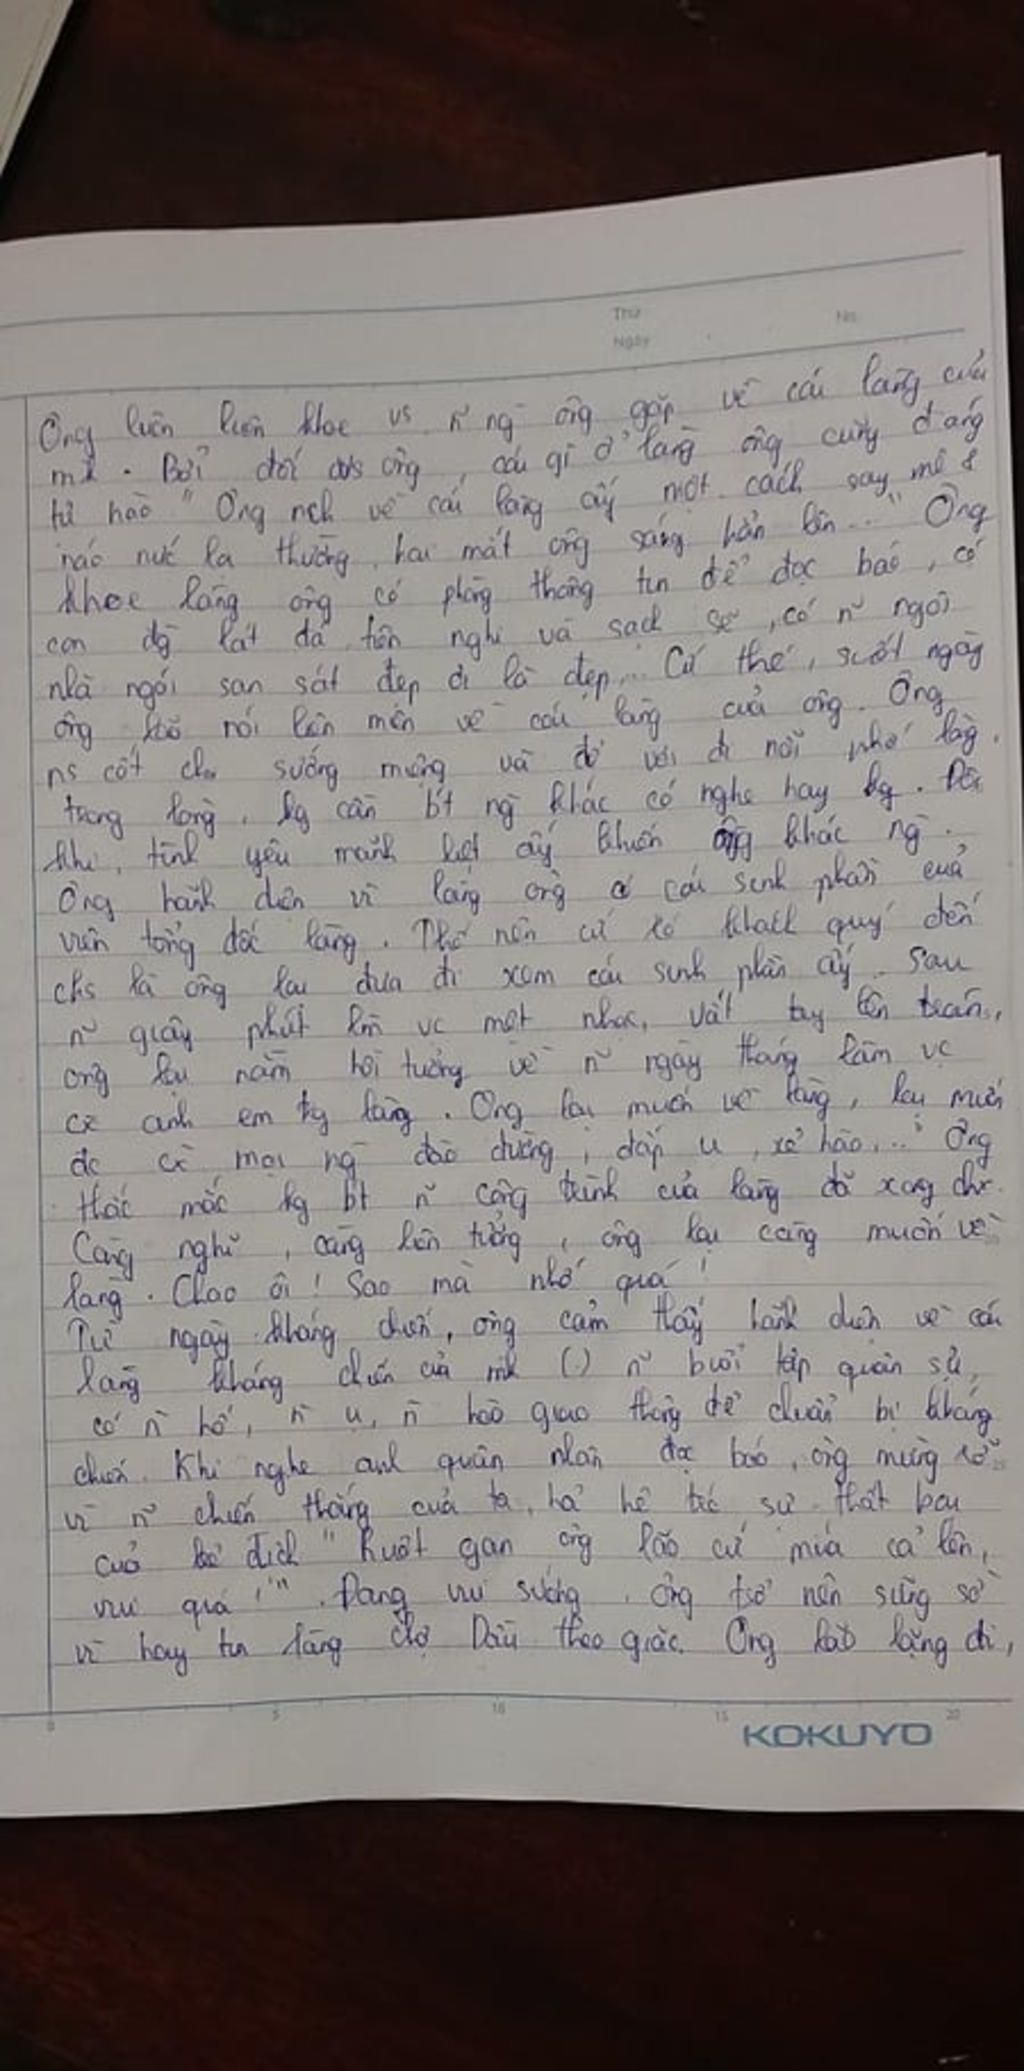 Thứ
No.
Ngày
Ông luôn luôn khoe vs n~ ng ông gặp về cái làng của
mk. Bởi đối vs ông, cái gì ở làng ông cũng đáng
tự hào " Ông nch về cái làng ấy một cách say mê &
náo nức lạ thường, hai mắt ông sáng hẳn lên..." Ông
khoe làng ông có phòng thông tin để đọc báo, có
con đg lát đá tiện nghi và sạch sẽ, có n~ ngôi
nhà ngói san sát đẹp ơi là đẹp... Cứ thế, suốt ngày
ông nói liên mên về cái làng của ông. Ông
ns cốt cho sướng miệng và đỡ vơi đi nỗi nhớ làng
trong lòng, kg cần bt ng khác có nghe hay kg. Đôi
khi, tình yêu mãnh liệt ấy khiến ông khác ng.
Ông hãnh diện vì làng ông có cái sinh phần của
viên tổng đốc làng. Thế nên cứ có khách quý đến
chs là ông lại đưa đi xem cái sinh phần ấy. Sau
n~ giây phút lm vc mệt nhọc, vắt tay lên trán,
ông lại nằm hồi tưởng về n~ ngày tháng làm vc
cx anh em tg làng. Ông lại muốn về làng, lại muốn
đc cx mọi ng đào đường, đắp ụ, xẻ hào,... Ông
thắc mắc kg bt n~ công trình của làng đã xong chx.
Càng nghĩ, càng liên tưởng, ông lại càng muốn về
làng. Chao ôi! Sao mà nhớ quá!
Từ ngày kháng chiến, ông cảm thấy hãnh diện về cái
làng kháng chiến của mk (.) n~ buổi tập quân sự,
có n~ hố, n~ ụ, n~ hào giao thông để chuẩn bị kháng
chiến. Khi nghe anh quân nhân đọc báo, ông mừng rỡ
vì n~ chiến thắng của ta, hả hê trc sự thất bại
của kẻ địch " Ruột gan ông lão cứ múa cả lên,
vui quá!". Đang vui sướng, ông trở nên sững sờ
vì hay tin làng chợ Dầu theo giặc. Ông lão lặng đi,
0 5 10 15 20
KOKUYO